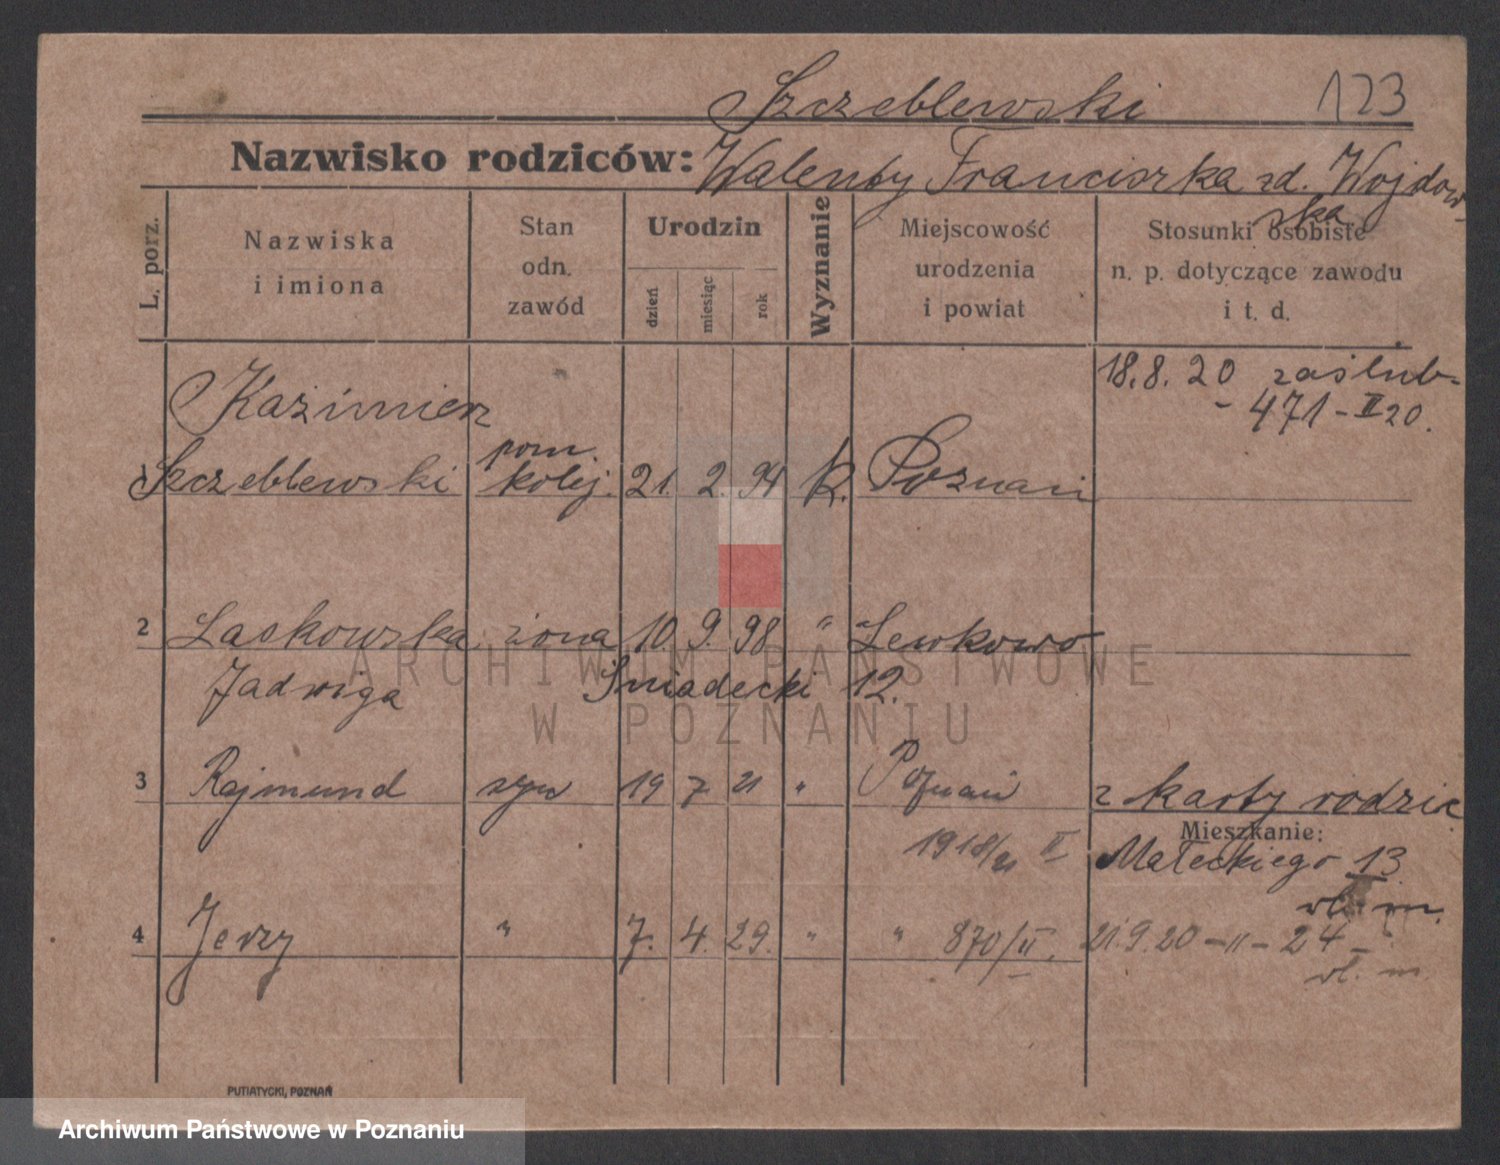 Szczeblewski 123
Nazwisko rodziców: Walenty Franciszka zd. Wojdow-
ska
L. porz.
Nazwiska
i imiona
Stan
odn.
zawód
Urodzin
dzień
miesiąc
rok
Wyznanie
Miejscowość
urodzenia
i powiat
Stosunki osobiste
n. p. dotyczące zawodu
i t. d.
18.8.20 zaślub-
- 471-II 20.
Kazimierz
pom.
Szczeblewski kolej. 21. 2. 94 k. Poznań
2 Laskowska żona 10. 9. 98 " Lewkowo
Jadwiga Śniadecki 12.
3 Rajmund syn 19 7 21 " Poznań z karty rodzic
Mieszkanie:
1918/21 II Małeckiego 13
vl. m.
4 Jerzy " 7. 4. 29. " " 870/II. 21.9.20 -"- 24-
vl. m.
PUTIATYCKI, POZNAŃ
ARCHIWUM PAŃSTWOWE
W POZNANIU
Archiwum Państwowe w Poznaniu